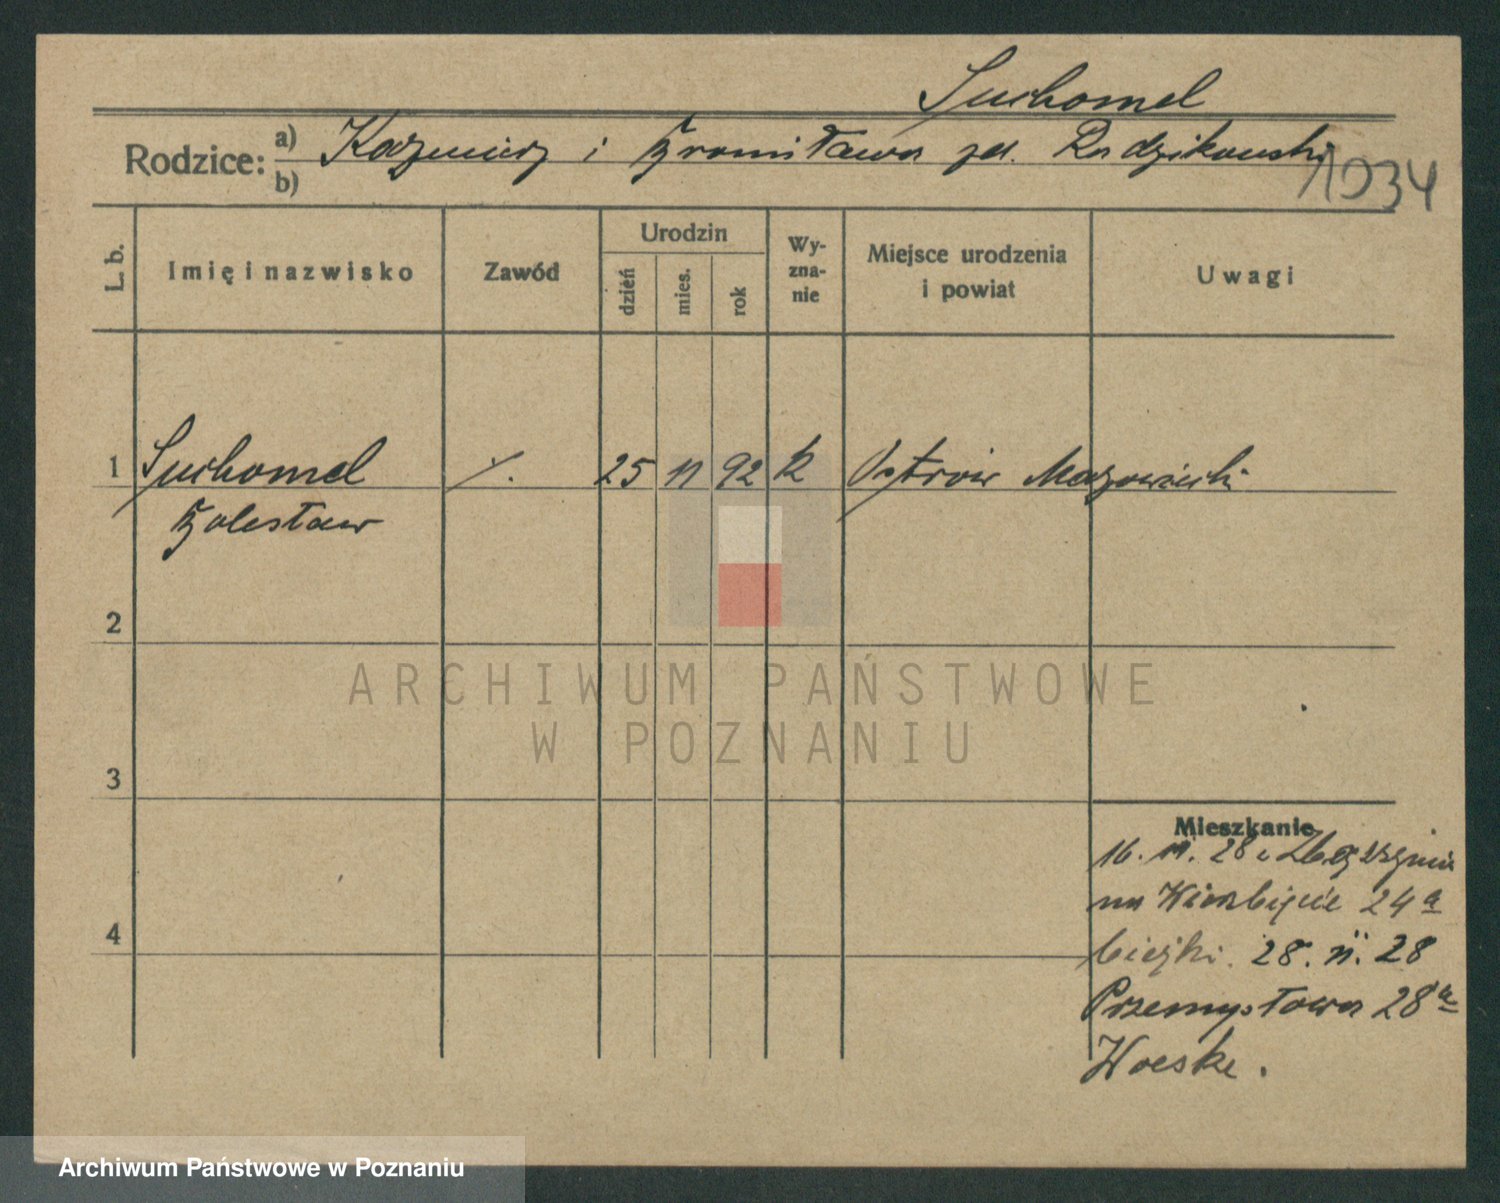 Suchomel
Rodzice: a) Kazmierz i Bronisława zd. Radzikowski
b)
1934
L. b.
Imię i nazwisko
Zawód
Urodzin
dzień
mies.
rok
Wy-
zna-
nie
Miejsce urodzenia
i powiat
Uwagi
1 Suchomel ·/. 25 11 92 k Ostrów Mazowiecki
Bolesław
2
ARCHIWUM PAŃSTWOWE
W POZNANIU
3
Mieszkanie
16. 11. 28 z Zbąszynia
na Wierzbięcie 24a
28. 11. 28
4
Przemysłowa 28a
Woeske.
Archiwum Państwowe w Poznaniu